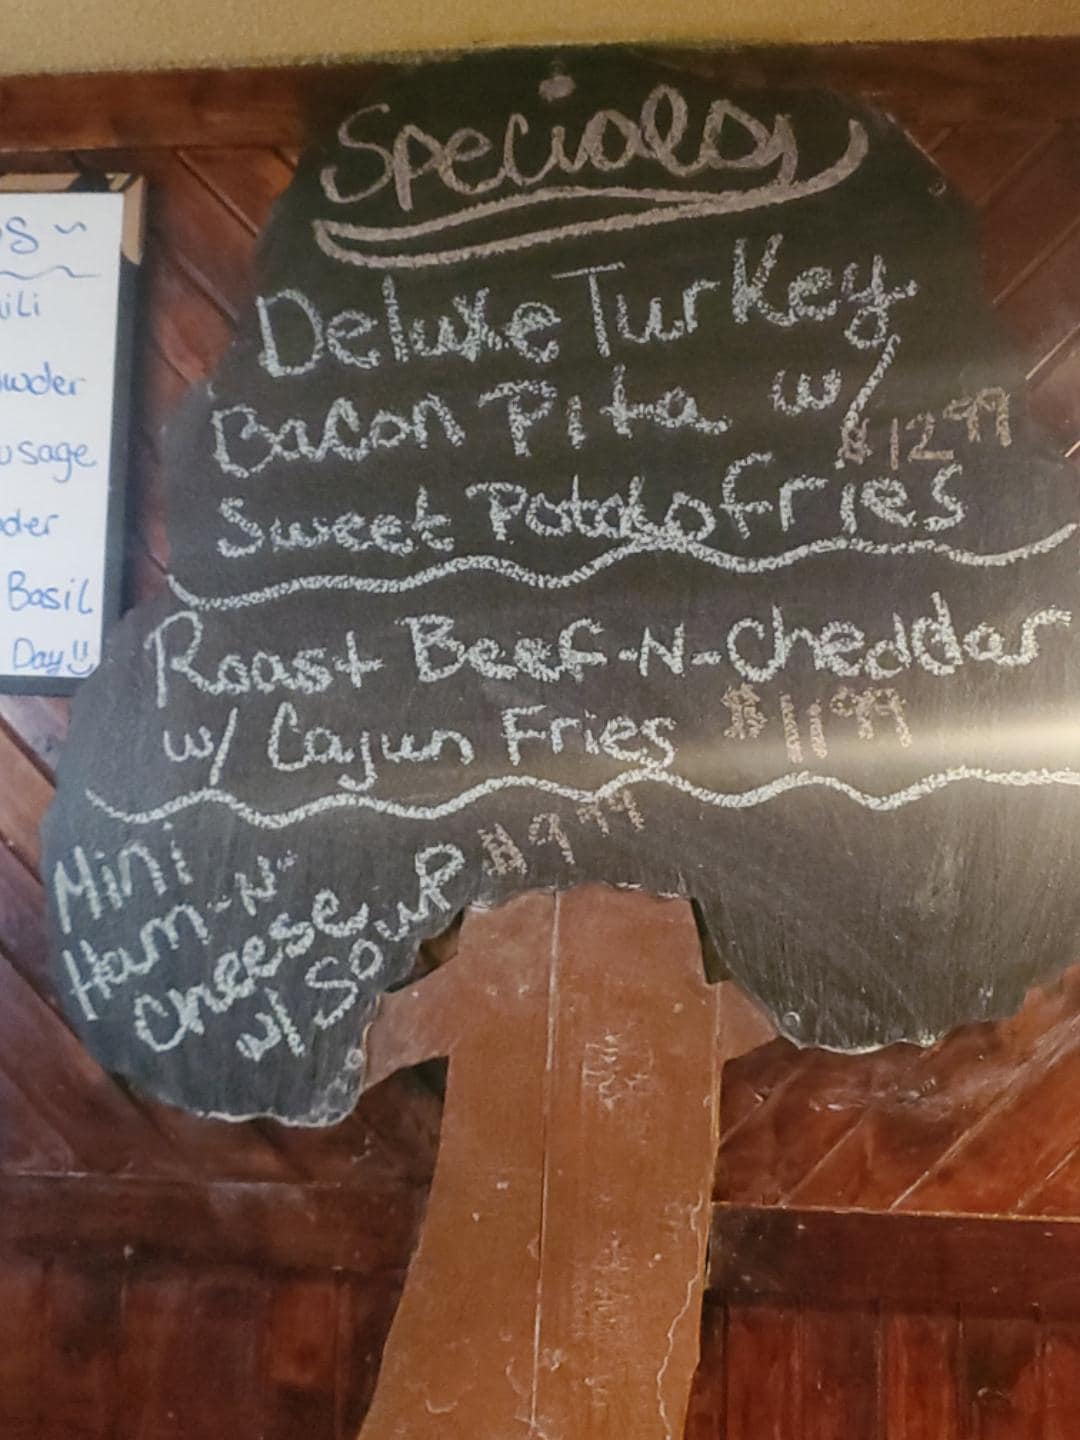 Specials
Deluxe Turkey
Bacon Pita w/
$12.99
Sweet Potato Fries
Roast Beef-N-Cheddar
w/ Cajun Fries $11.99
Mini
Ham-N-
Cheese
w/ Soup $9.99
usage
Basil
Day!!